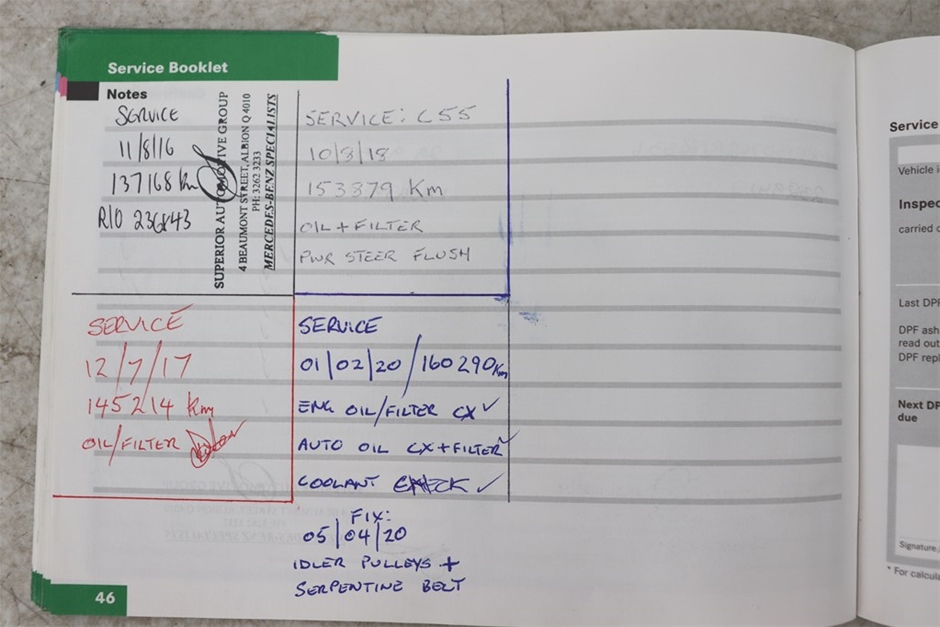 Service Booklet
Notes
SERVICE
11/8/16
137168 Km
R/O 236843
SUPERIOR AUTOMOTIVE GROUP
4 BEAUMONT STREET, ALBION Q 4010
PH: 3262 3233
MERCEDES-BENZ SPECIALISTS
SERVICE: C55
10/8/18
153879 Km
OIL + FILTER
PWR STEER FLUSH
SERVICE
12/7/17
145214 Km
OIL/FILTER
SERVICE
01/02/20/160290Km
ENG OIL/FILTER CX ✓
AUTO OIL CX+FILTER ✓
COOLANT CHECK ✓
FIX:
05/04/20
IDLER PULLEYS +
SERPENTINE BELT
46
Service
Vehicle i
Inspec
carried o
Last DPF
DPF ash
read out
DPF repl
Next DP
due
Signature,
* For calcula